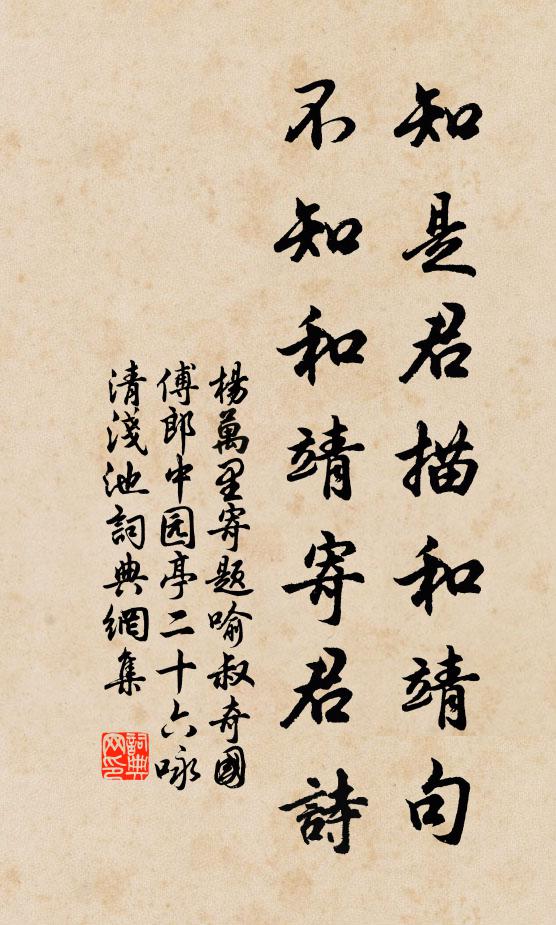 知是君描和靖句
不知和靖寄君詩
楊萬里寄題喻叔奇國
傅郎中园亭二十六咏
清淺池詞典網集
詞典網印